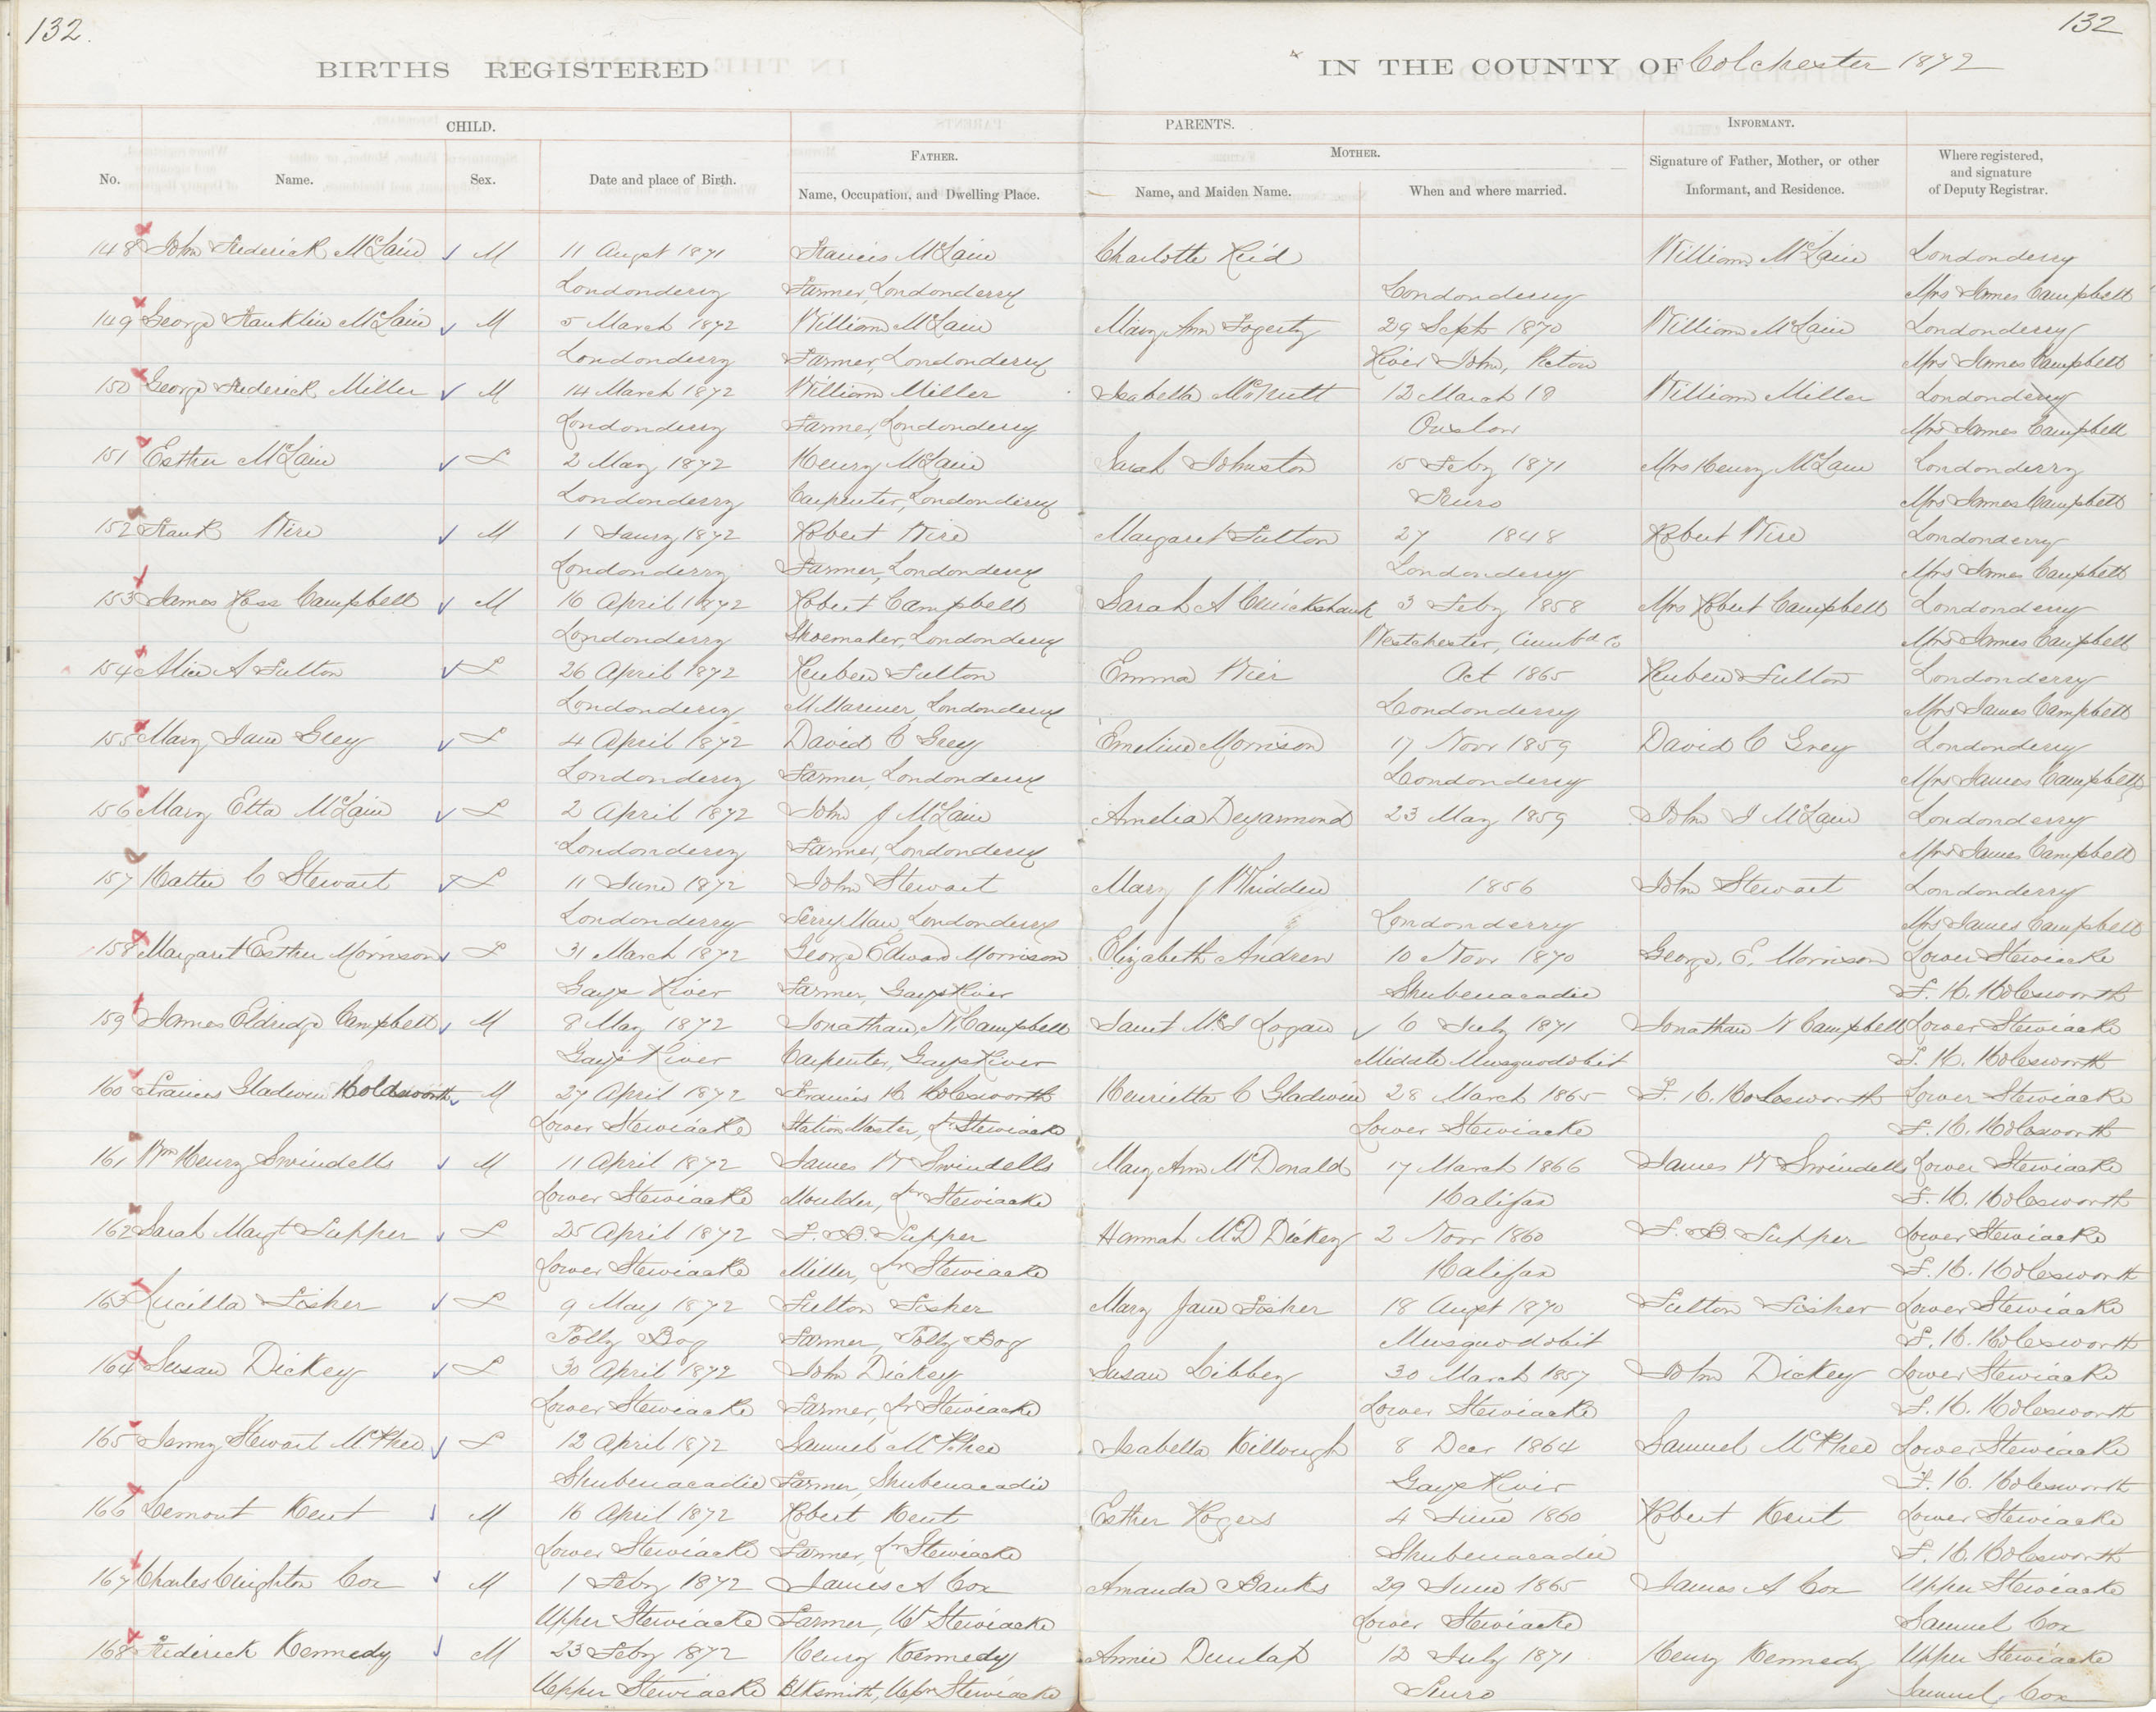 132.
132
BIRTHS REGISTERED
IN THE COUNTY OF Colchester 1872
CHILD.
PARENTS.
INFORMANT.
FATHER.
MOTHER.
No. Name. Sex. Date and place of Birth. Name, Occupation, and Dwelling Place. Name, and Maiden Name. When and where married. Signature of Father, Mother, or other Informant, and Residence. Where registered, and signature of Deputy Registrar.
148 John Frederick McLain M 11 Augst 1871 Francis McLain Charlotte Reid William McLain Londonderry
Londonderry Farmer, Londonderry Londonderry Mrs James Campbell
149 George Franklin McLain M 5 March 1872 William McLain Mary Ann Fogerty 29 Sept 1870 William McLain Londonderry
Londonderry Farmer, Londonderry River John, Picton Mrs James Campbell
150 George Frederick Miller M 14 March 1872 William Miller Isabella McNutt 12 March 18 William Miller Londonderry
Londonderry Farmer, Londonderry Onslow Mrs James Campbell
151 Esther McLain F 2 May 1872 Henry McLain Sarah Johnston 15 Feby 1871 Mrs Henry McLain Londonderry
Londonderry Carpenter, Londonderry Truro Mrs James Campbell
152 Frank Wire M 1 Jany 1872 Robert Wire Margaret Fulton 27 1848 Robert Wire Londonderry
Londonderry Farmer, Londonderry Londonderry Mrs James Campbell
153 James Ross Campbell M 16 April 1872 Robert Campbell Sarah A Cruickshank 3 Feby 1858 Mrs Robert Campbell Londonderry
Londonderry Shoemaker, Londonderry Westchester, Cumbd Co Mrs James Campbell
154 Alice A Fulton F 26 April 1872 Reuben Fulton Emma Wier Oct 1865 Reuben Fulton Londonderry
Londonderry M Mariner, Londonderry Londonderry Mrs James Campbell
155 Mary Jane Grey F 4 April 1872 David C Grey Emeline Morrison 17 Novr 1859 David C Grey Londonderry
Londonderry Farmer, Londonderry Londonderry Mrs James Campbell
156 Mary Etta McLain F 2 April 1872 John J McLain Amelia Deyarmond 23 May 1859 John J McLain Londonderry
Londonderry Farmer, Londonderry Mrs James Campbell
157 Hattie C Stewart F 11 June 1872 John Stewart Mary J Whidden 1856 John Stewart Londonderry
Londonderry Ferry Man, Londonderry Londonderry Mrs James Campbell
158 Margaret Esther Morrison F 31 March 1872 George Edward Morrison Elizabeth Andrew 10 Novr 1870 George. E. Morrison Lower Stewiacke
Gays River Farmer, Gays River Shubenacadie F. H. Holesworth
159 James Eldridge Campbell M 8 May 1872 Jonathan N Campbell Janet McI Logan 6 July 1871 Jonathan N Campbell Lower Stewiacke
Gays River Carpenter, Gays River Middle Musquodobit F. H. Holesworth
160 Francis Gladwin Holdsworth M 27 April 1872 Francis H Holesworth Henrietta C Gladwin 28 March 1865 F. H. Holesworth Lower Stewiacke
Lower Stewiacke Station Master, Lr Stewiacke Lower Stewiacke F. H. Holesworth
161 Wm Henry Swindells M 11 April 1872 James W Swindells Mary Ann McDonald 17 March 1866 James W Swindells Lower Stewiacke
Lower Stewiacke Moulder, Lr Stewiacke Halifax F. H. Holesworth
162 Sarah Margt Tupper F 25 April 1872 F. B. Tupper Hannah McD Dickey 2 Novr 1860 F. B. Tupper Lower Stewiacke
Lower Stewiacke Miller, Lr Stewiacke Halifax F. H. Holesworth
163 Lucilla Fisher F 9 May 1872 Fulton Fisher Mary Jane Fisher 18 Augst 1870 Fulton Fisher Lower Stewiacke
Polly Bog Farmer, Polly Bog Musquodobit F. H. Holesworth
164 Susan Dickey F 30 April 1872 John Dickey Susan Libbey 30 March 1857 John Dickey Lower Stewiacke
Lower Stewiacke Farmer, Lr Stewiacke Lower Stewiacke F. H. Holesworth
165 Jenny Stewart McPhee F 12 April 1872 Samuel McPhee Isabella Killough 8 Decr 1864 Samuel McPhee Lower Stewiacke
Shubenacadie Farmer, Shubenacadie Gays River F. H. Holesworth
166 Lemont Kent M 16 April 1872 Robert Kent Esther Rogers 4 June 1860 Robert Kent Lower Stewiacke
Lower Stewiacke Farmer, Lr Stewiacke Shubenacadie F. H. Holesworth
167 Charles Creighton Cox M 1 Feby 1872 James A Cox Amanda Banks 29 June 1865 James A Cox Upper Stewiacke
Upper Stewiacke Farmer, Stewiacke Lower Stewiacke Samuel Cox
168 Frederick Kennedy M 23 Feby 1872 Henry Kennedy Annie Dunlap 12 July 1871 Henry Kennedy Upper Stewiacke
Upper Stewiacke Blksmith, Stewiacke Truro Samuel Cox